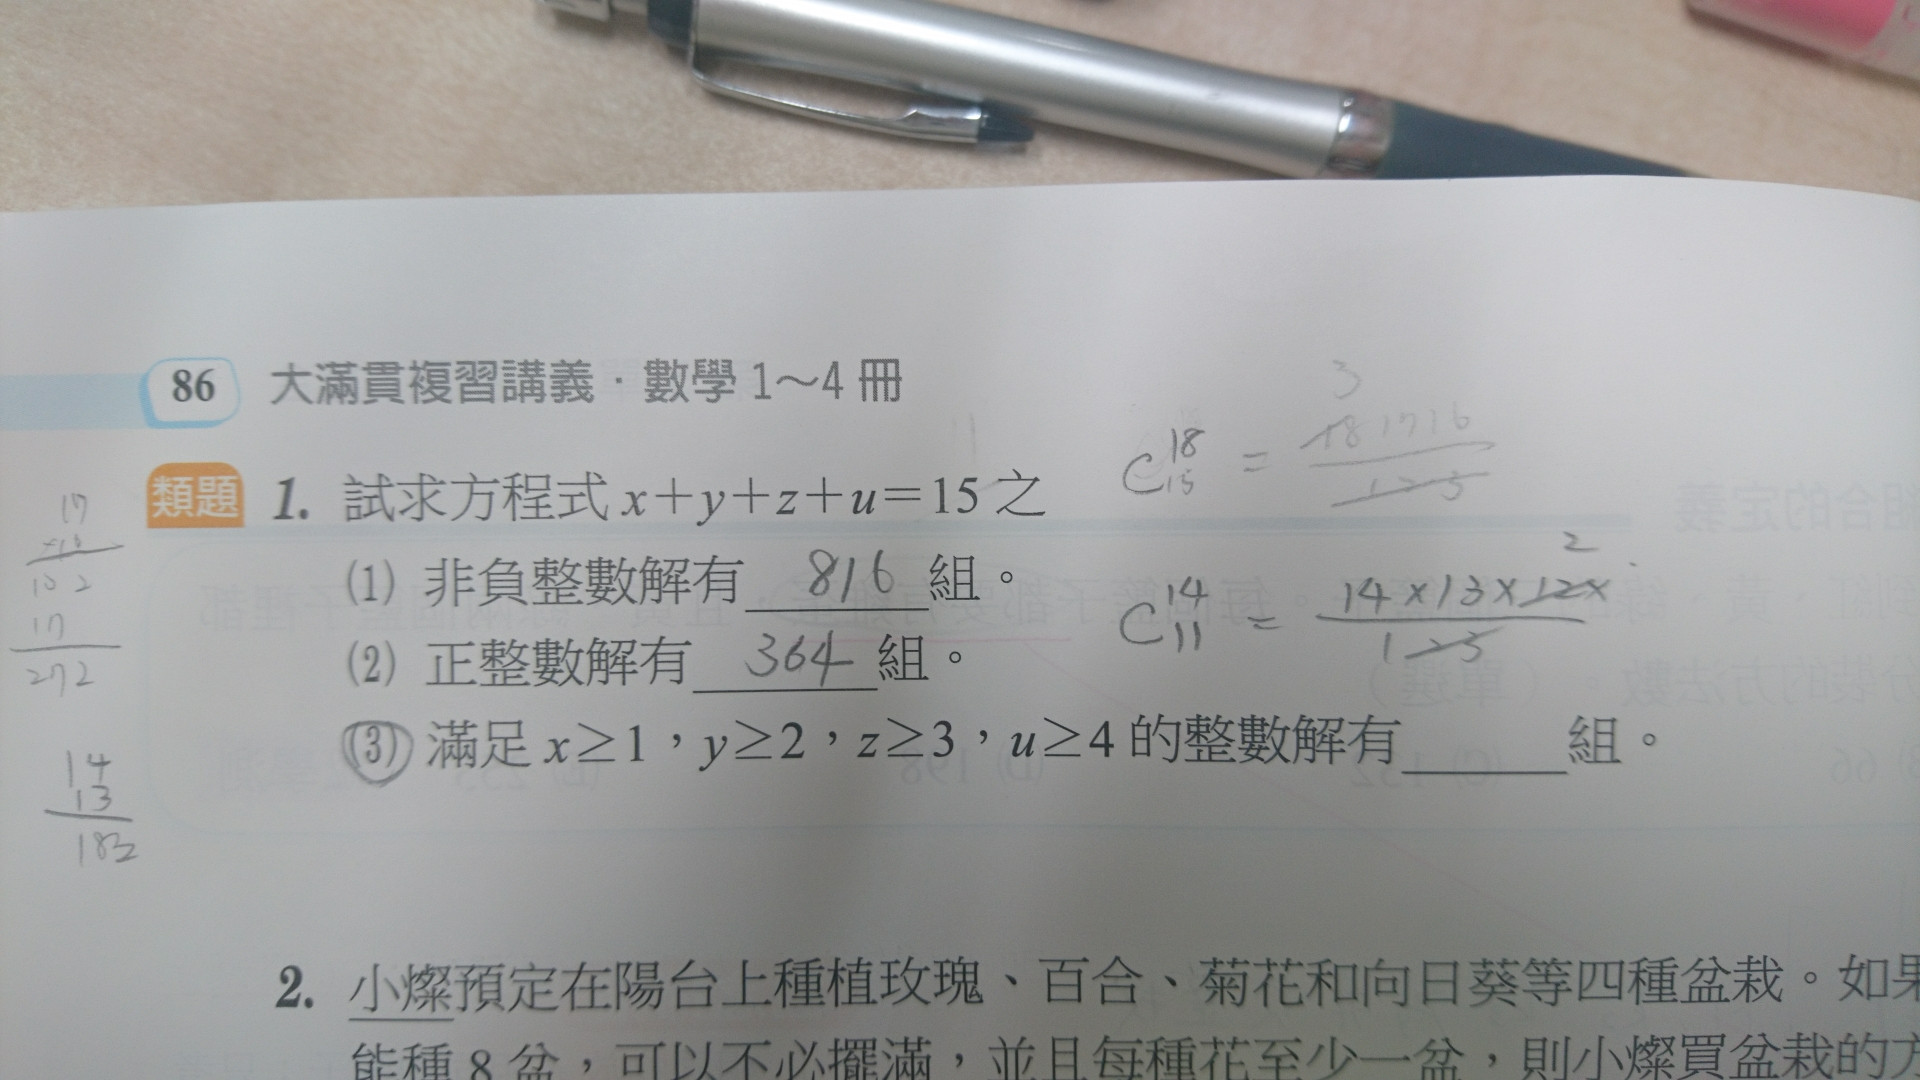 86 大滿貫複習講義・數學 1～4 冊
類題 1. 試求方程式 x＋y＋z＋u＝15 之
(1) 非負整數解有 816 組。
(2) 正整數解有 364 組。
(3) 滿足 x≥1，y≥2，z≥3，u≥4 的整數解有______組。
C 18 15 = 3 18 17 16 / 1 2 3
C 14 11 = 14×13×12× 2 / 1 2 3
17
×16
102
17
272
14
13
182
2. 小燦預定在陽台上種植玫瑰、百合、菊花和向日葵等四種盆栽。如果
能種 8 盆，可以不必擺滿，並且每種花至少一盆，則小燦買盆栽的方